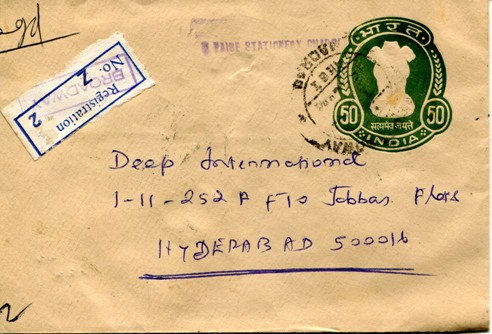 Regd
PAISE STATIONERY CHARGE
Registration
No. Z
2
BROADWAY
MADRAS
भारत
50 50
सत्यमेव जयते
INDIA
Deep International
1-11-252 A F10 Jabbar Flats
HYDERABAD 500016